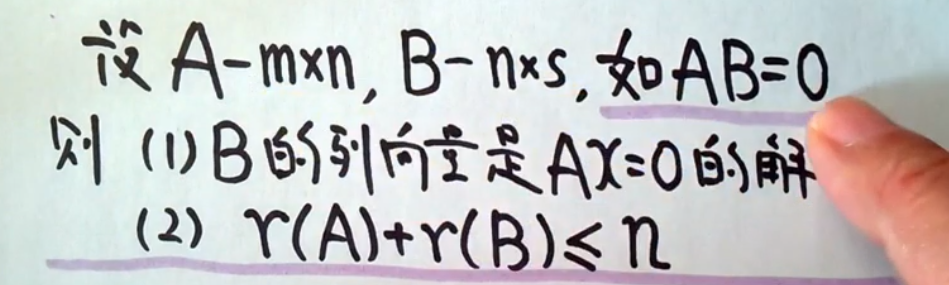 设 A-m×n, B-n×s, 如AB=0
则 (1) B的列向量是AX=0的解
(2) r(A)+r(B)≤n